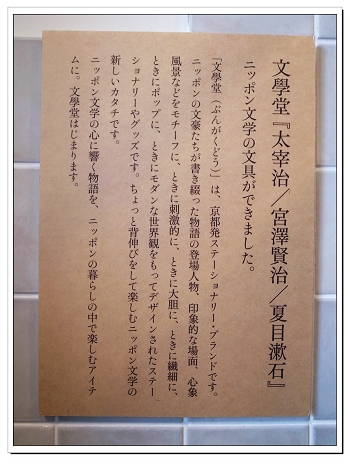 文學堂『太宰治／宮澤賢治／夏目漱石』
ニッポン文学の文具ができました。
「文學堂（ぶんがくどう）」は、京都発ステーショナリー・ブランドです。
ニッポンの文豪たちが書き綴った物語の登場人物、印象的な場面、心象
風景などをモチーフに、ときに刺激的に、ときに大胆に、ときに繊細に、
ときにポップに、ときにモダンな世界観をもってデザインされたステー
ショナリーやグッズです。ちょっと背伸びをして楽しむニッポン文学の
新しいカタチです。
ニッポン文学の心に響く物語を、ニッポンの暮らしの中で楽しむアイテ
ムに。文學堂はじまります。